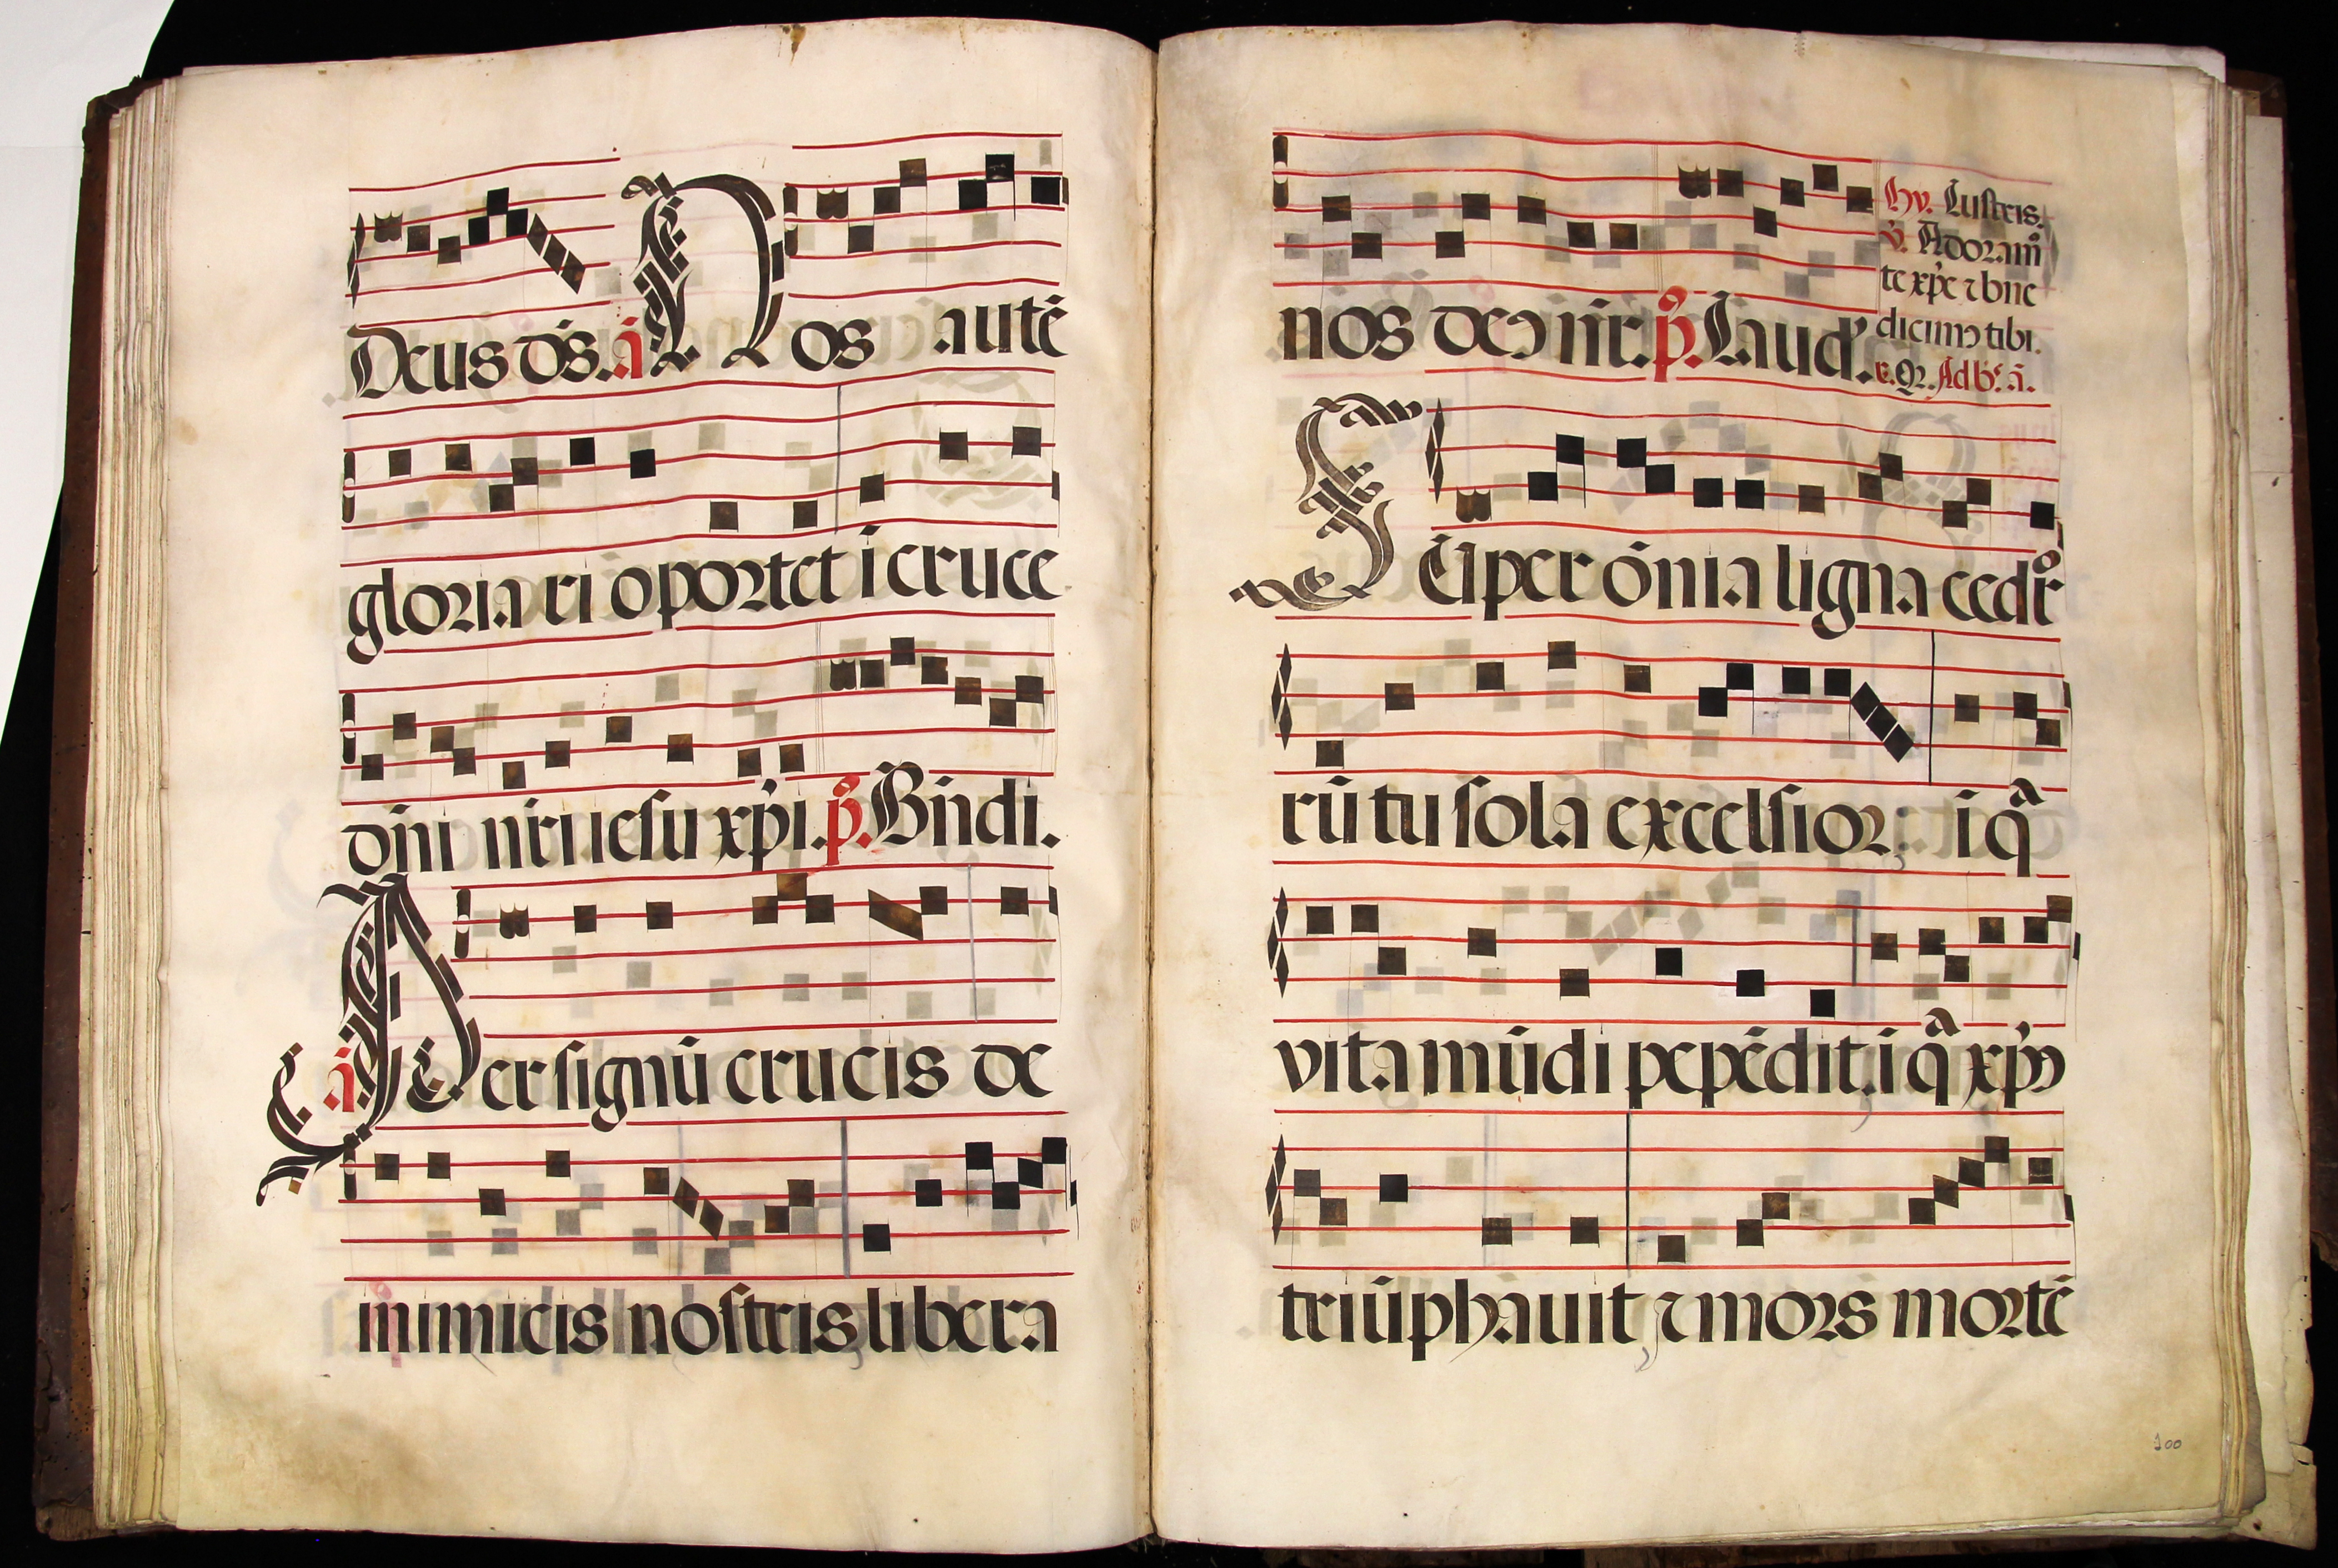 Deus ds. ā Nos autē
gloriari oportet i cruce
dn̄i nr̄i iesu xp̄i. p̄. Bn̄di.
ā Per signū crucis de
inimicis nostris libera
nos deꝯ nr̄. p̄. Laud'.
Hy. Lustris.
v̄. Adoramꝰ
te xp̄e ⁊ bn̄e
dicimꝯ tibi.
r. Qꝛ. Ad b̄s. ā.
Sēꝑ per ōnia ligna cedr̊
rū tu sola excelsior, i qᵃ
vita mūdi pepēdit, i qᵃ xp̄ꝯ
triūphauit, ⁊ mors mortē
100